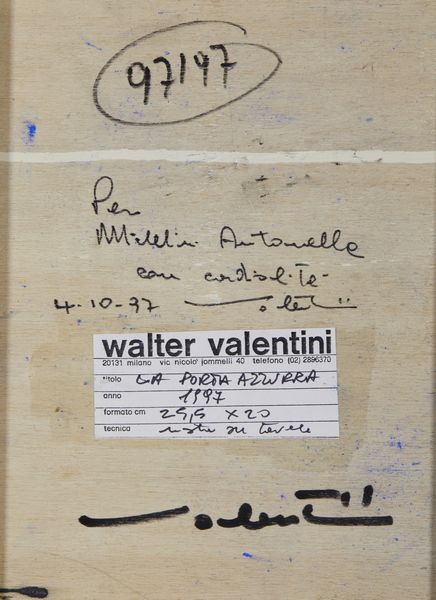 97/97
Per
Antonella
con cordialità
4-10-97 Valentini
walter valentini
20131 milano vic nicolo' jommelli 40 telefono (02) 2896370
titolo LA PORTA AZZURRA
anno 1997
formato cm 25,5 x 20
tecnica mista su tavola
Valentini